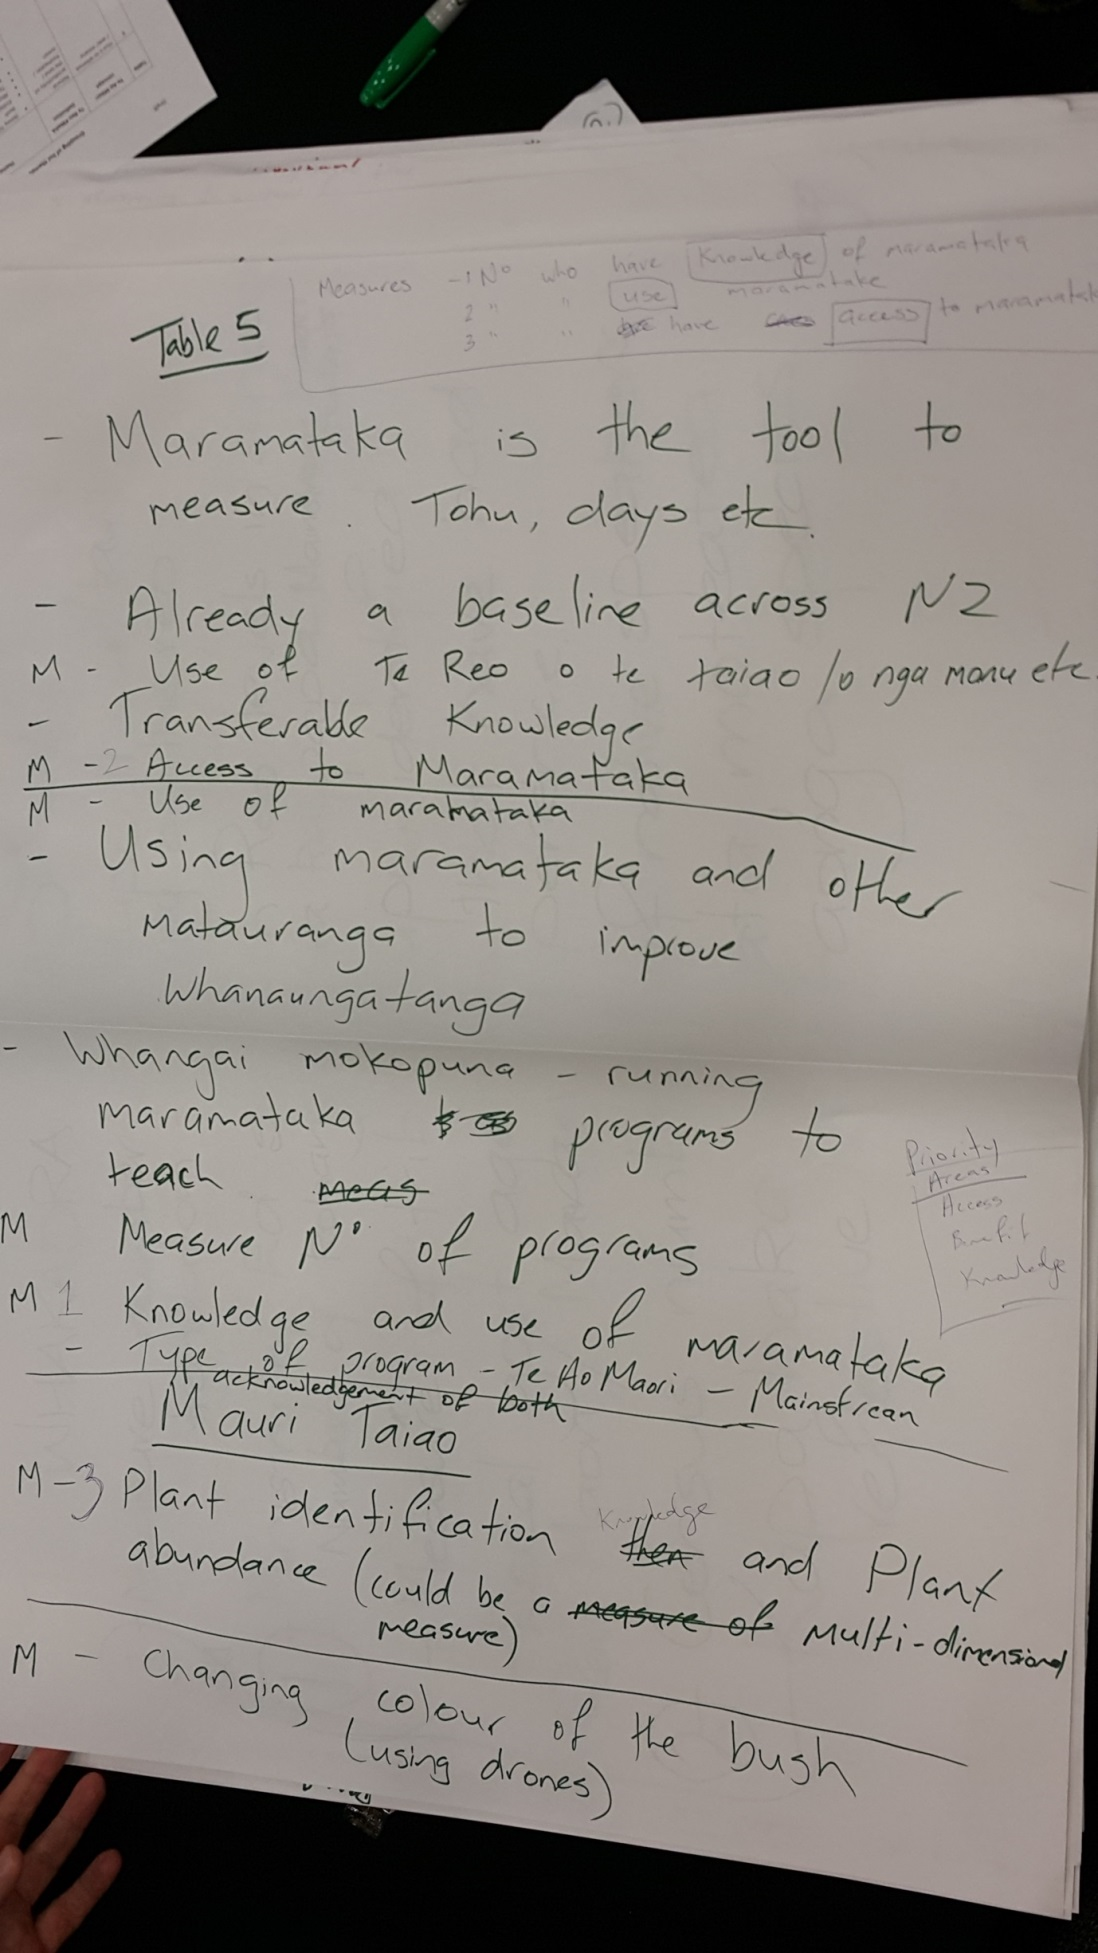 Measures - 1 No who have Knowledge of maramataka
2 " " use maramatake
3 " " have access to maramatak
Table 5
- Maramataka is the tool to
measure. Tohu, days etc.
- Already a baseline across NZ
M - Use of Te Reo o te taiao /o nga manu etc.
- Transferable Knowledge
M - 2 Access to Maramataka
M - Use of maramataka
- Using maramataka and other
Matauranga to improve
Whanaungatanga
- Whangai mokopuna - running
maramataka programs to
teach. meas
M Measure No of programs
M 1 Knowledge and use of maramataka
- Type of program - Te Ao Maori - Mainstream
acknowledgement of both
Mauri Taiao
M-3 Plant identification then Knowledge and Plant
abundance (could be a measure of multi-dimensional
measure)
M - Changing colour of the bush
(using drones)
Priority
Areas
Access
Benefit
Knowledge